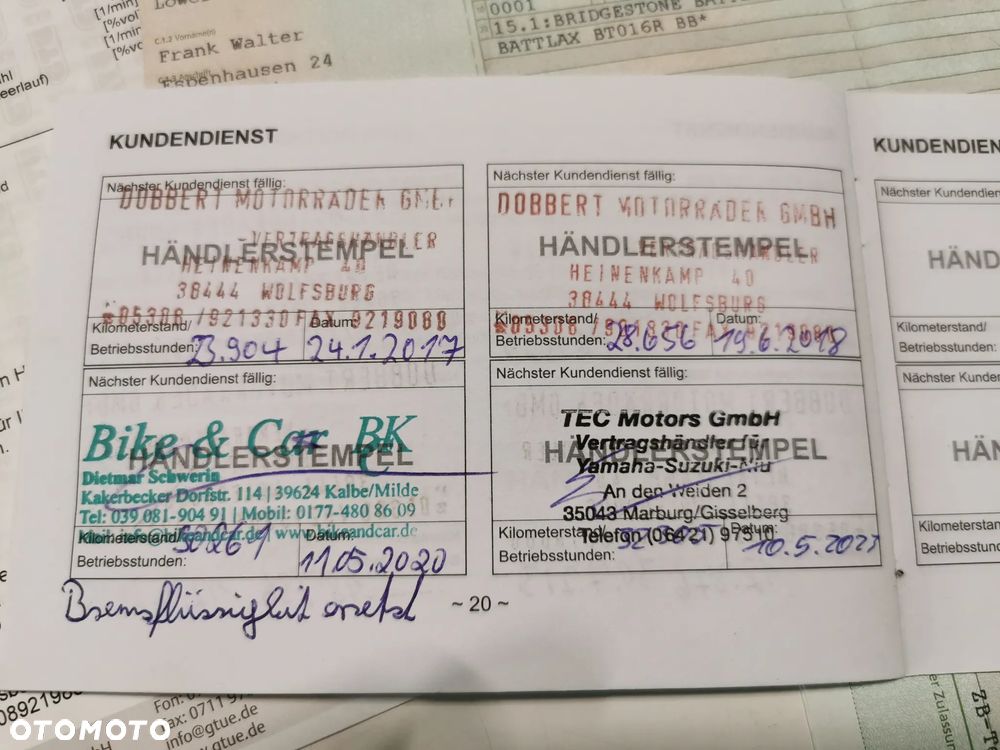 [1/min]
[%vol
[1/min
[%vo
C.1.2 Vorname(n)
Frank Walter
Espenhausen 24
0001
15.1:BRIDGESTONE BATT
BATTLAX BT016R BB*
KUNDENDIENST
Nächster Kundendienst fällig:
DOBBERT MOTORRÄDER GMBH
VERTRAGSHÄNDLER
HÄNDLERSTEMPEL
HEINENKAMP 40
38444 WOLFSBURG
05308 /921330 FAX 9219080
Kilometerstand/
Betriebsstunden: 23.904
Datum:
24.1.2017
Nächster Kundendienst fällig:
DOBBERT MOTORRÄDER GMBH
HÄNDLERSTEMPEL
HEINENKAMP 40
38444 WOLFSBURG
Kilometerstand/
Betriebsstunden: 28.656
Datum:
19.6.2018
Nächster Kundendienst fällig:
Bike & Car BKC
HÄNDLERSTEMPEL
Dietmar Schwerin
Kakerbecker Dorfstr. 114 | 39624 Kalbe/Milde
Tel: 039 081-904 91 | Mobil: 0177-480 86 09
www.bikeandcar.de
Kilometerstand/
Betriebsstunden:
Datum:
11.05.2020
Bremsflüssigkeit ersetzt
Nächster Kundendienst fällig:
TEC Motors GmbH
Vertragshändler für
HÄNDLERSTEMPEL
Yamaha-Suzuki-Niu
An den Weiden 2
35043 Marburg/Gisselberg
Telefon (06421) 97510
Kilometerstand/
Betriebsstunden:
Datum:
~ 20 ~
KUNDENDIEN
Nächster Kundendien
HÄND
Kilometerstand/
Betriebsstunden:
Nächster Kunde
HÄN
Kilometerstan
Betriebsstund
info@gtue.de
gtue.de
OTOMOTO